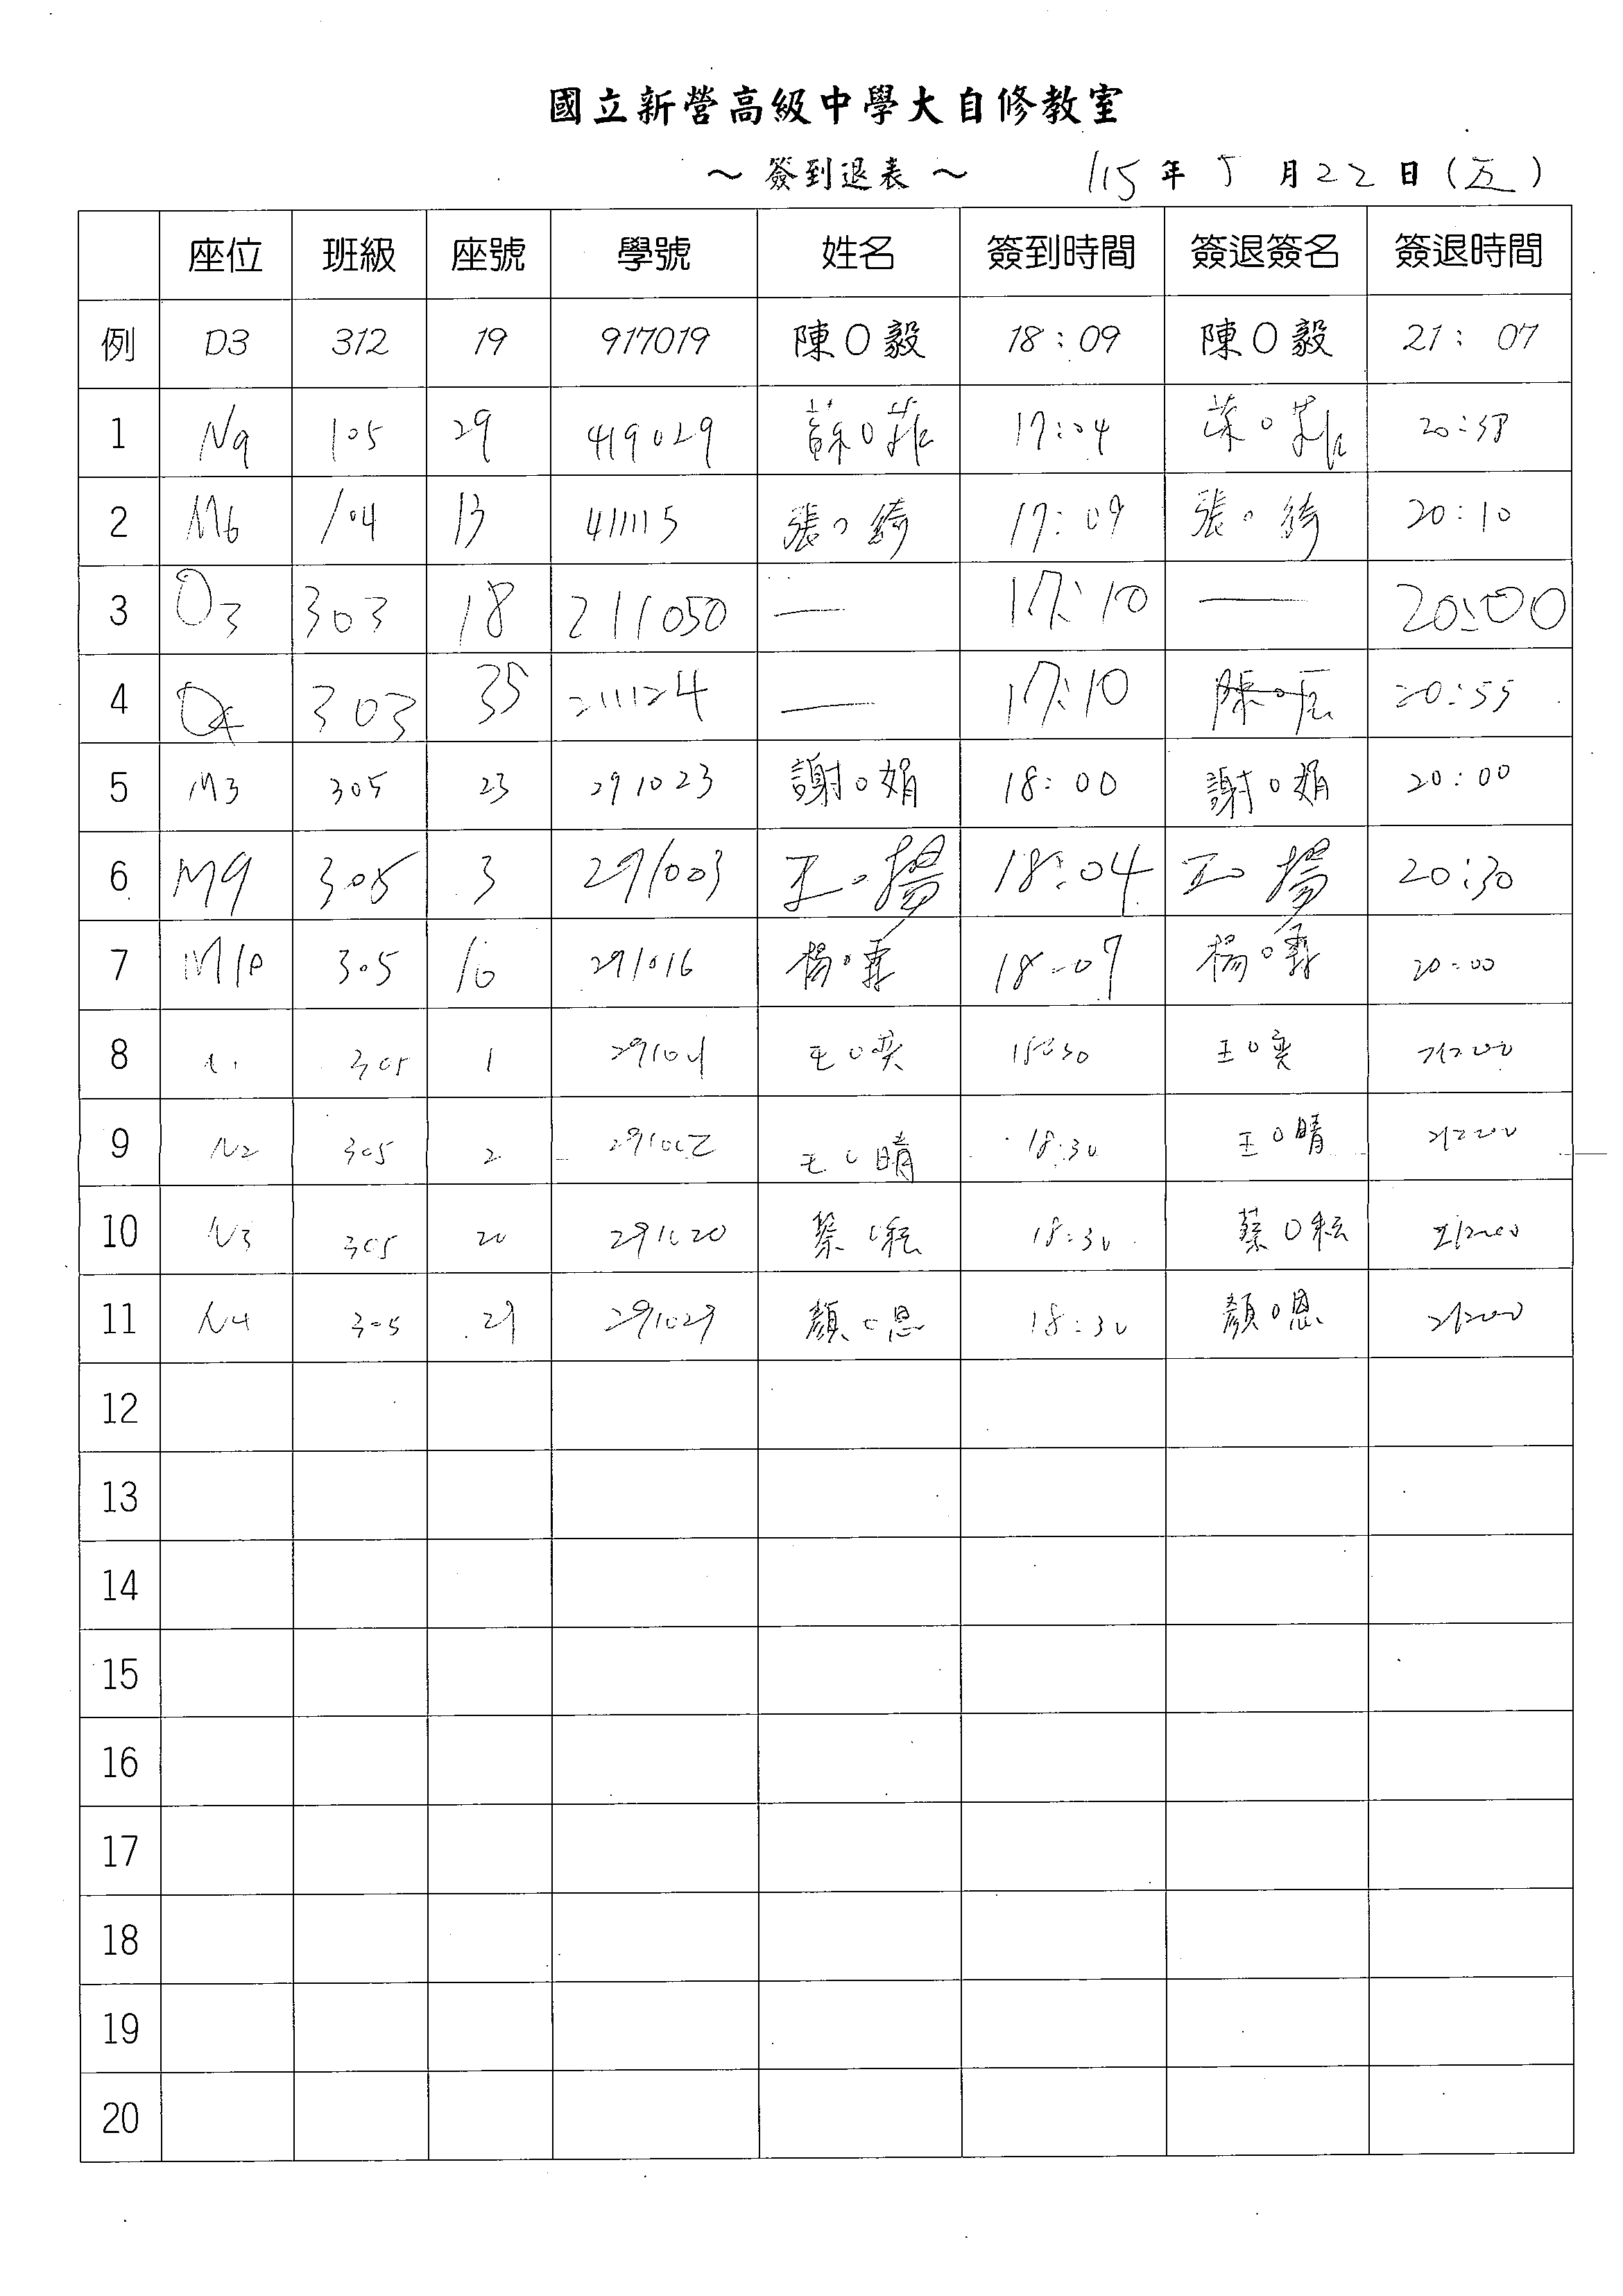 國立新營高級中學大自修教室
～ 簽到退表 ～ 115 年 5 月 22 日 (五)
座位 班級 座號 學號 姓名 簽到時間 簽退簽名 簽退時間
例 D3 312 19 917019 陳O毅 18:09 陳O毅 21:07
1 N9 105 29 419029 蘇O菲 17:04 O菲 20:58
2 M6 104 13 411115 張O綺 17:09 張O綺 20:10
3 O3 303 18 211050 — 17:10 — 20:00
4 303 35 211124 — 17:10 陳O 20:55
5 M3 305 23 291023 謝O娟 18:00 謝O娟 20:00
6 M9 305 3 291003 王O揚 18:04 王O揚 20:30
7 M10 305 16 291016 楊O霏 18:09 楊O霏 20:00
8 305 1 291001 王O奕 18:30 王O奕 21:00
9 N2 305 2 291002 王O晴 18:30 王O晴 21:00
10 N3 305 20 291020 蔡O耘 18:30 蔡O耘 21:00
11 N4 305 29 291029 顏O恩 18:30 顏O恩 21:00
12
13
14
15
16
17
18
19
20